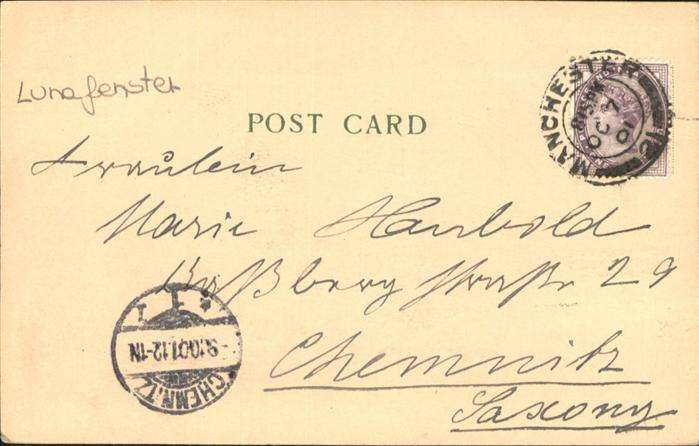 Lunafenster
POST CARD
MANCHESTER
8.15PM
OC 7
01
Fräulein
Marie Haubold
Straße 29
Chemnitz
Saxony
CHEMNITZ
-9.10.01.12-1N